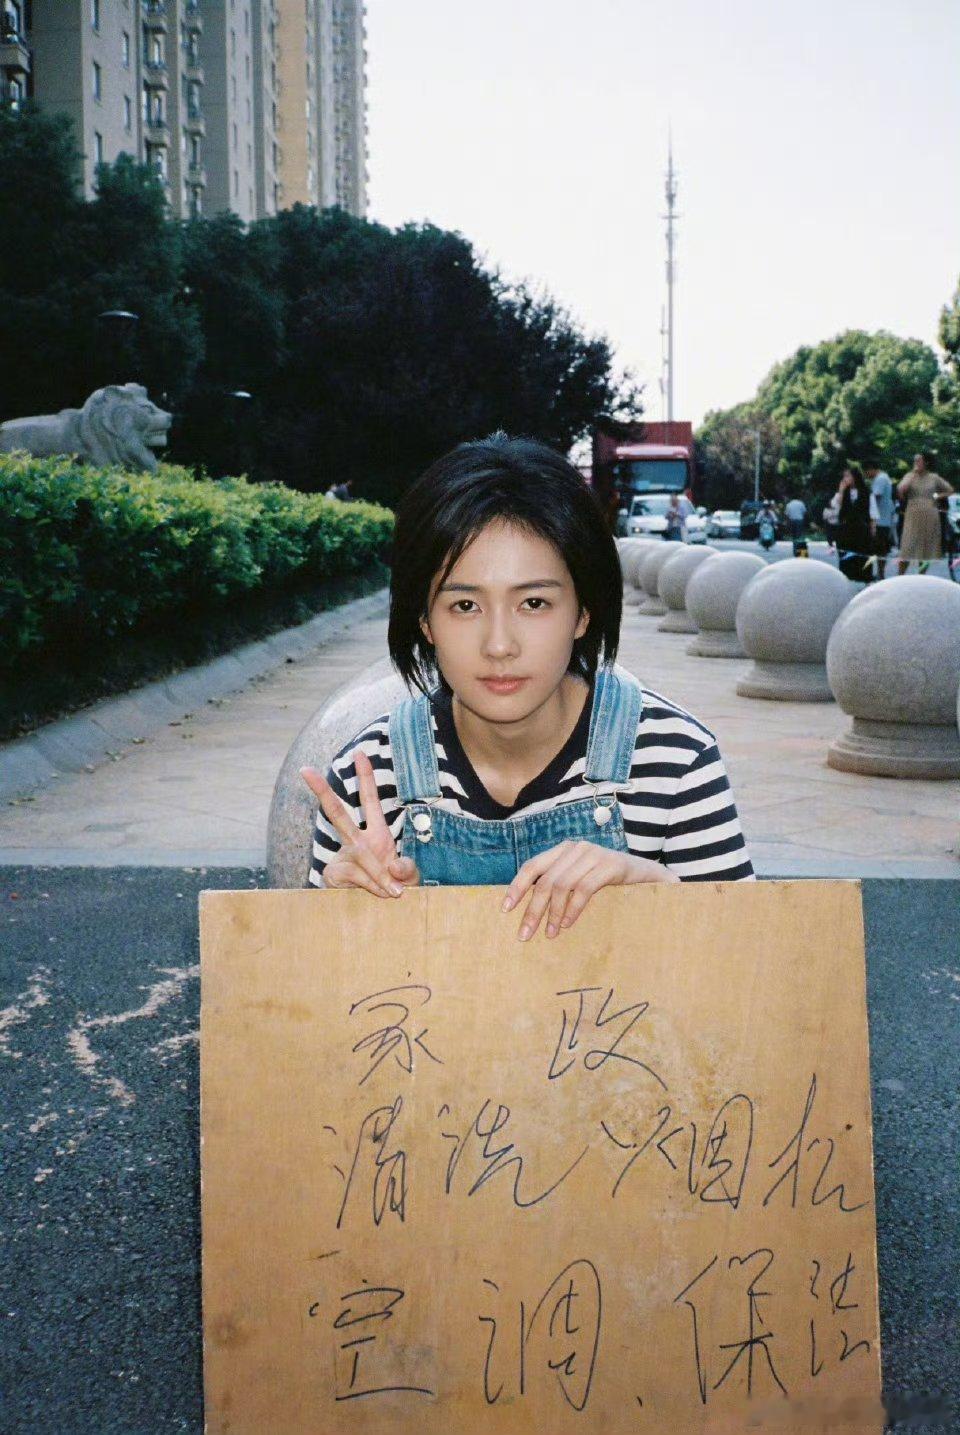 家 政
清洗 烟机
空调、保洁